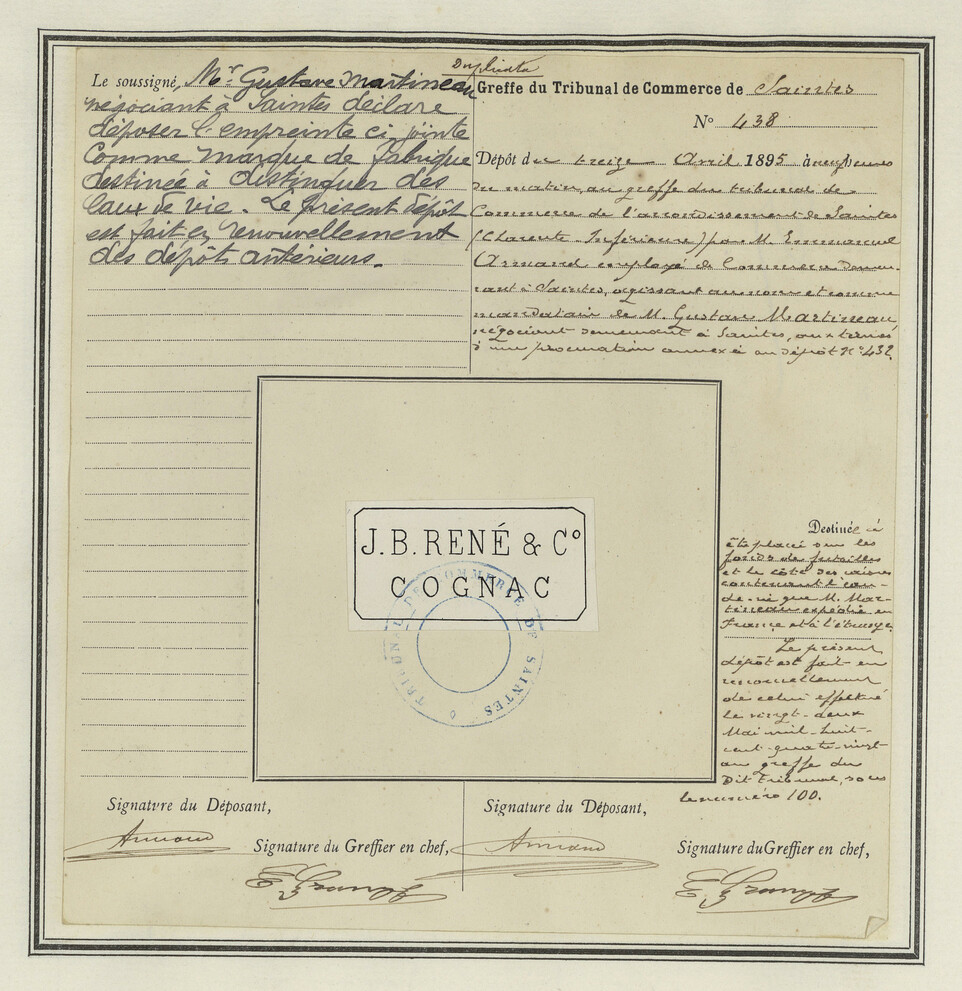 Le soussigné, Mr. Gustave Martineau
négociant à Saintes déclare
déposer l'empreinte ci jointe
Comme marque de fabrique
destinée à distinguer des
Eaux de vie. Le présent dépôt
est fait en renouvellement
des dépôts antérieurs.
Duplicata
Greffe du Tribunal de Commerce de Saintes
N° 438
Dépôt du treize Avril 1895 à neuf heures
du matin, au greffe du tribunal de
Commerce de l'arrondissement de Saintes
(Charente Inférieure) par M. Emmanuel
Armand employé de Commerce demeu-
rant à Saintes, agissant au nom et comme
mandataire de M. Gustave Martineau
négociant demeurant à Saintes, aux termes
d'une procuration annexée au dépôt N° 432.
J.B. RENÉ & Co
COGNAC
TRIBUNAL DE COMMERCE DE SAINTES
Destinée à
être placé sur les
fonds de futailles
et le côté des caisses
contenant l'eau-
de-vie que M. Mar-
tineau expédie en
France et à l'étranger.
Le présent
dépôt est fait en
renouvellement
de celui effectué
le vingt-deux
Mai mil-huit-
cent-quatre-vingt
au greffe du
Dit Tribunal, sous
le numéro 100.
Signature du Déposant,
Armand
Signature du Greffier en chef,
Signature du Déposant,
Armand
Signature du Greffier en chef,